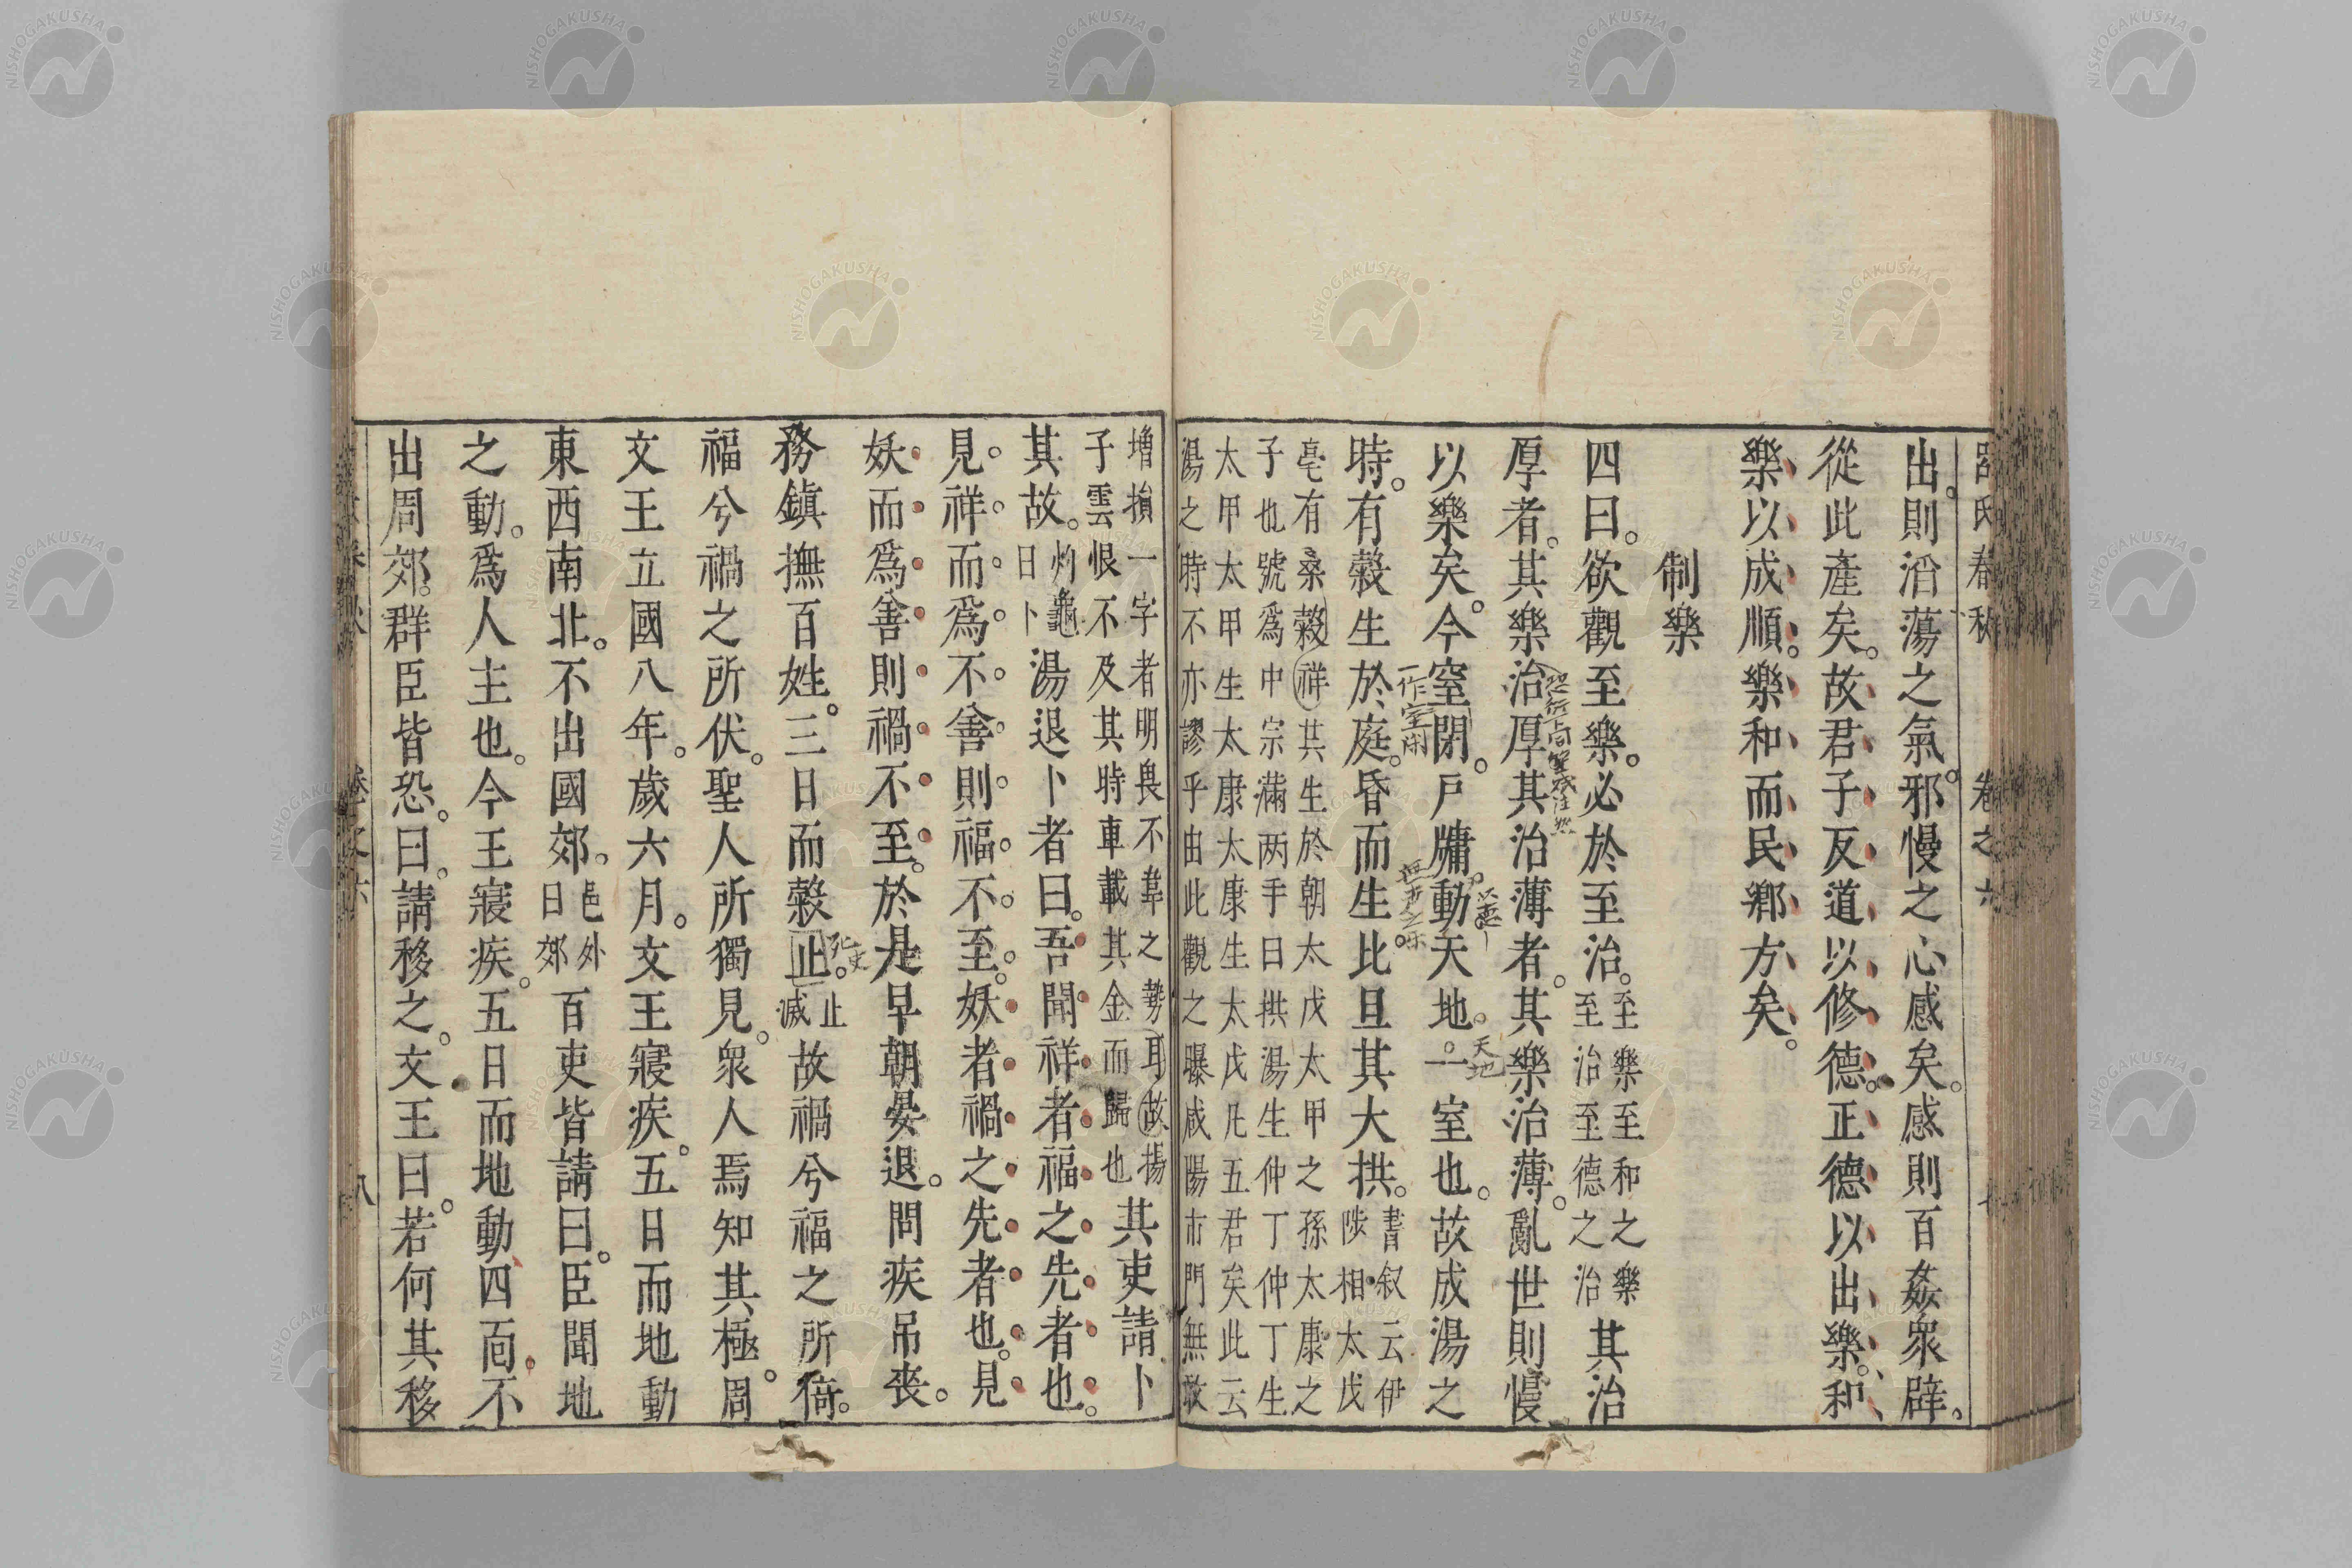 呂氏春秋 卷之六
出。則滔蕩之氣。邪慢之心感矣。感則百姦衆辟。
從此產矣。故君子反道以修德。正德以出樂。和
樂以成順。樂和而民鄉方矣。
制樂
四曰。欲觀至樂。必於至治。至樂至和之樂至治至德之治其治
厚者。其樂治厚其治薄者。其樂治薄。亂世則慢
以樂矣。今窒閉。戸牗。動天地。一室也。故成湯之
時。有穀生於庭。昏而生。比旦其大拱。書叙云伊陟相太戊
亳有桑穀祥共生於朝太戊太甲之孫太康之
子也號爲中宗滿两手曰拱湯生仲丁仲丁生
太甲太甲生太康太康生太戊凡五君矣此云
湯之時不亦謬乎由此觀之曝咸陽市門無敢
増損一字者明畏不韋之勢耳故揚
子雲恨不及其時車載其金而歸也其吏請卜
其故。灼龜曰卜湯退卜者曰。吾聞祥者福之先者也。
見祥而爲不善則福不至。妖者禍之先者也。見
妖而爲善則禍不至。於是早朝晏退。問疾吊喪。
務鎮撫百姓。三日而穀止。止滅故禍兮福之所倚。
福兮禍之所伏。聖人所獨見。衆人焉知其極。周
文王立國八年。歲六月。文王寢疾。五日而地動
東西南北。不出國郊。邑外曰郊百吏皆請曰。臣聞地
之動。爲人主也。今王寢疾。五日而地動四靣不
出周郊。群臣皆恐。曰。請移之。文王曰。若何其移
八
NISHOGAKUSHA